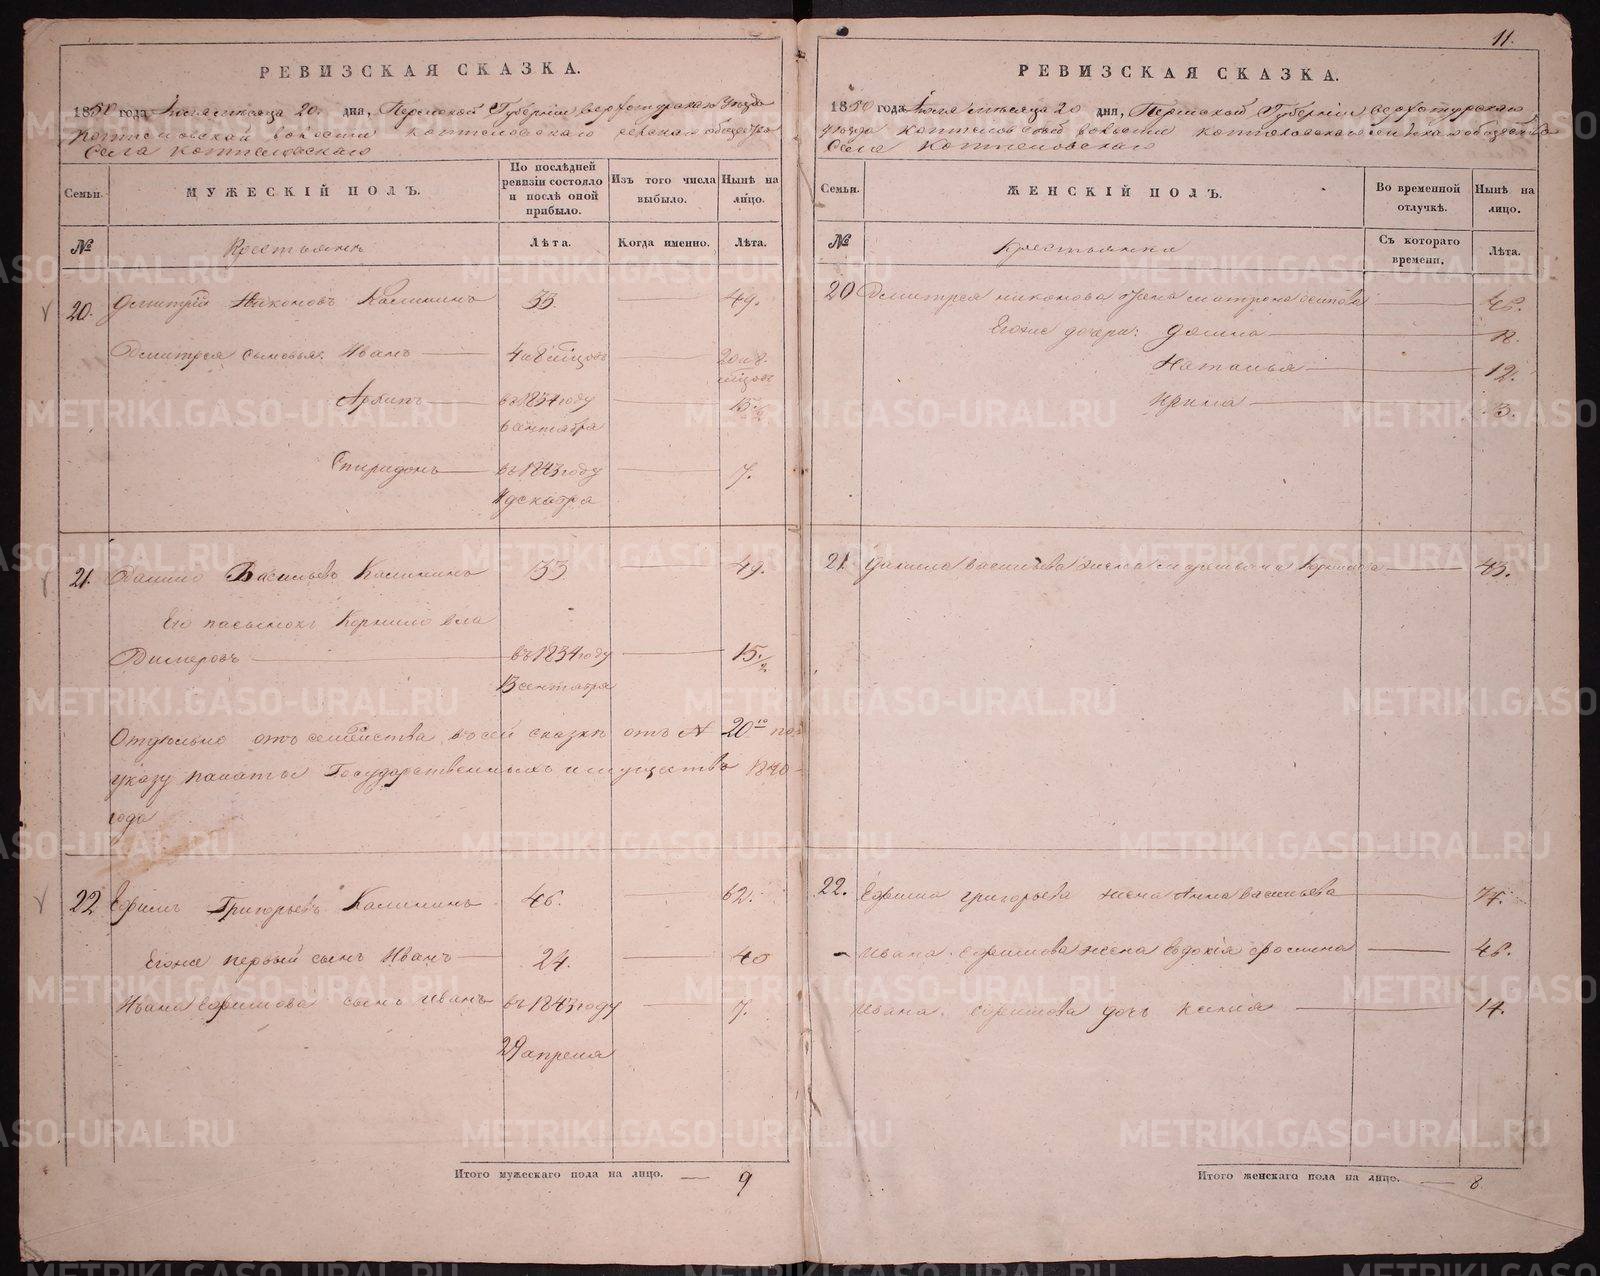 11.
РЕВИЗСКАЯ СКАЗКА.
1850 года Іюля мѣсяца 20 дня, Пермской Губерніи Верхотурскаго уѣзда
Коптеловской волости Коптеловскаго сельскаго общества
Села Коптеловскаго
Семьи.
МУЖЕСКІЙ ПОЛЪ.
По послѣдней ревизіи состояло и послѣ оной прибыло.
Изъ того числа выбыло.
Нынѣ на лицо.
№
Крестьянъ
Лѣта.
Когда именно.
Лѣта.
20. Дмитрій Никоновъ Калининъ 33. 49.
Дмитрея сыновья: Иванъ 4 и 8 мѣсцовъ 20 и 8. мѣсцовъ
Архипъ въ 1834 году 15.
сентября
Спиридонъ въ 1843 году 7.
декабря
21. Данило Васильевъ Калининъ 33 49.
Его пасынокъ Корнило Вла
димеровъ въ 1834 году 15.
13 сентября
Отдѣльно отъ семейства въ сей сказкѣ отъ № 20го по
указу палаты Государственныхъ имуществъ 1840
года
22 Ефимъ Григорьевъ Калининъ 46. 62.
Егоже первый сынъ Иванъ 24. 40
Ивана Ефимова сынъ Иванъ въ 1843 году 7.
29 апреля
Итого мужескаго пола на лицо. — 9
РЕВИЗСКАЯ СКАЗКА.
1850 года Іюля мѣсяца 20 дня, Пермской Губерніи Верхотурскаго
уѣзда Коптеловской волости Коптеловскаго сельскаго общества
Села Коптеловскаго
Семьи.
ЖЕНСКІЙ ПОЛЪ.
Во временной отлучкѣ.
Нынѣ на лицо.
№
Крестьянки
Съ котораго времени.
Лѣта.
20 Дмитрея Никонова жена Матрона Осипова 46.
Егоже дочери: Домна 18.
Наталья 12.
Ирина 3.
21. Данила Васильева жена Корнилова 43.
22. Ефима Григорьева жена Анна Васильева 74.
Ивана Ефимова жена Евдокія 46.
Ивана Ефимова дочь Ксенія 14.
Итого женскаго пола на лицо. — 8
METRIKI.GASO-URAL.RU